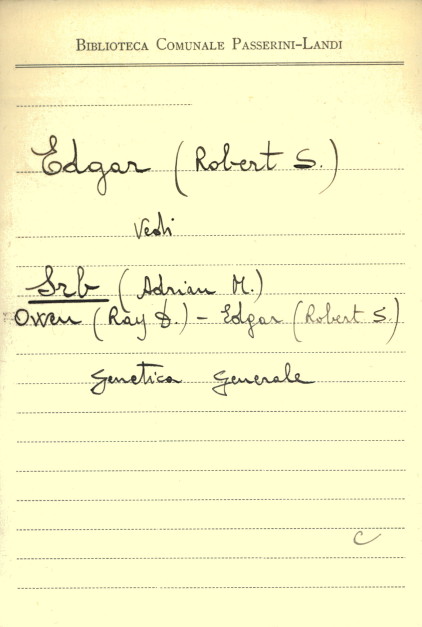 Biblioteca Comunale Passerini-Landi
Edgar (Robert S.)
Vedi
Srb (Adrian M.)
Owen (Ray D.) - Edgar (Robert S.)
Genetica Generale
C